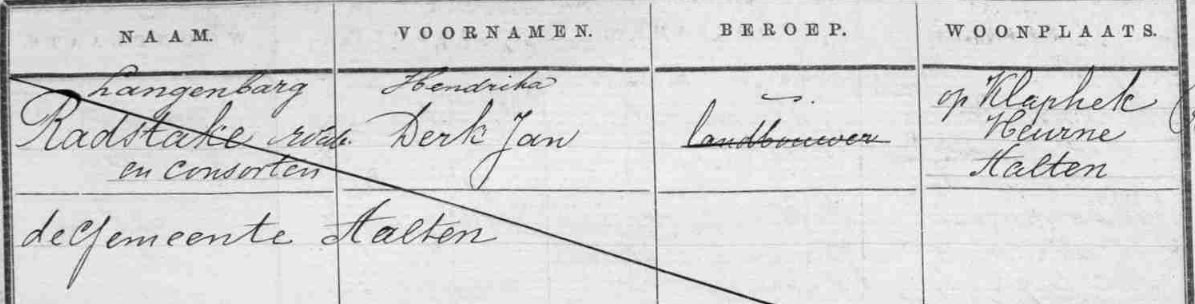 NAAM. VOORNAMEN. BEROEP. WOONPLAATS.
Langenbarg Hendrika
Radstake Derk Jan landbouwer op Klaphek
Heurne
en consorten Aalten
de Gemeente Aalten